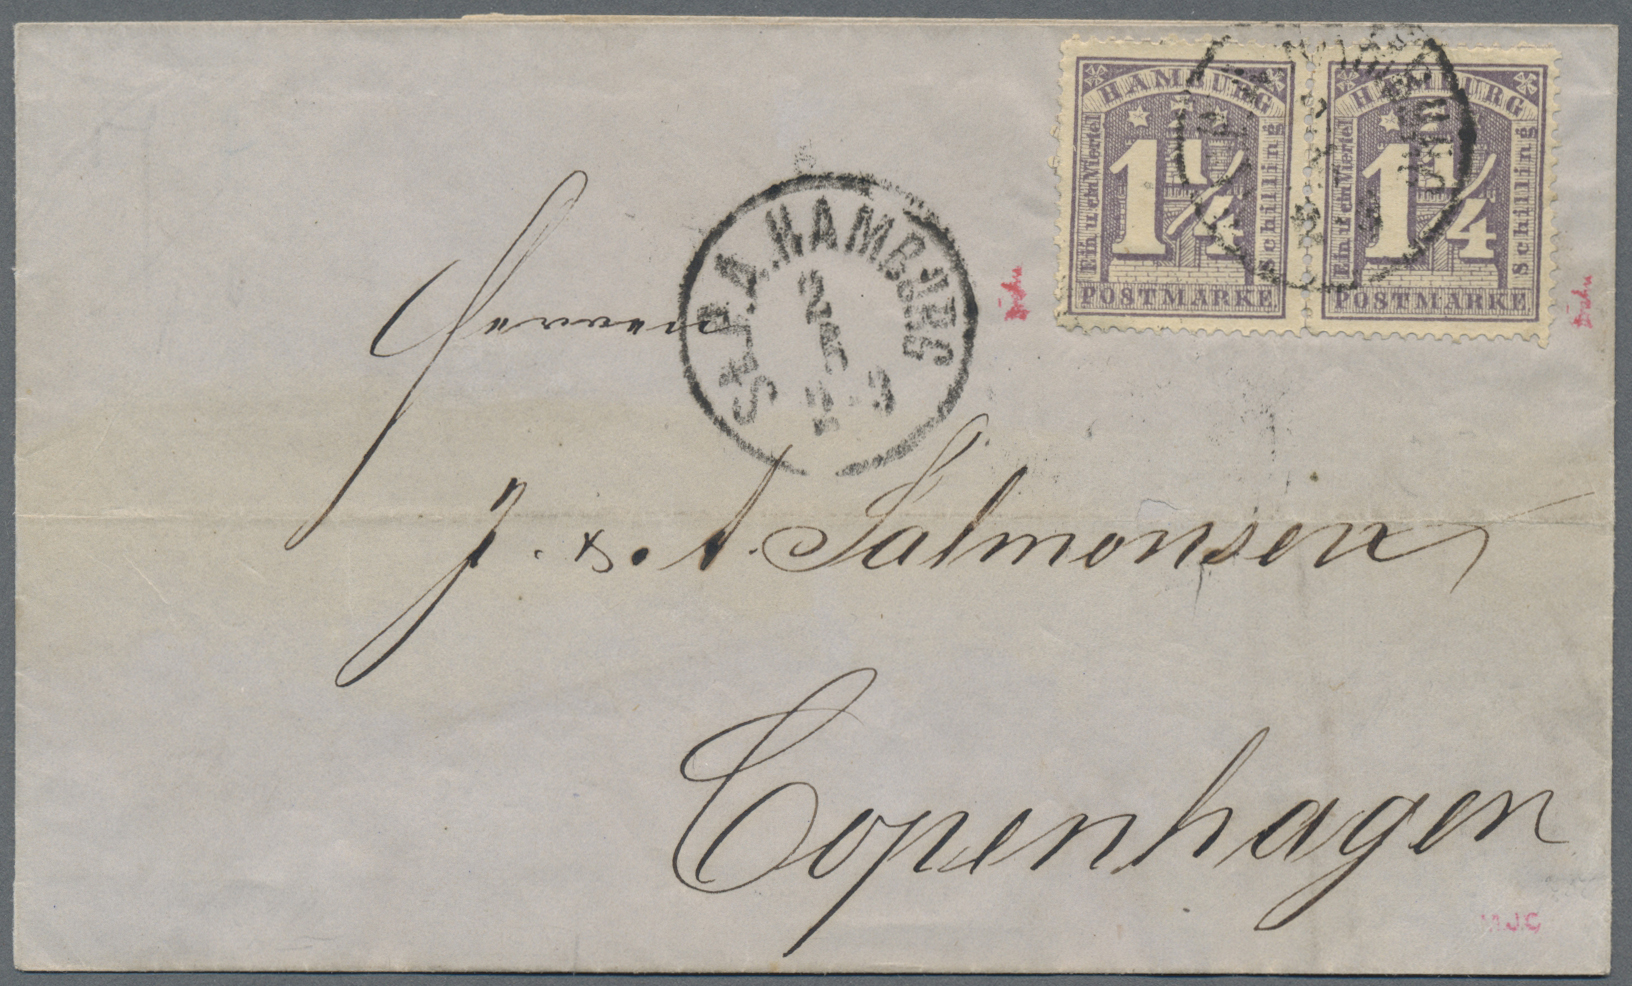 HAMBURG
Ein u. ein Viertel
1¼
Schilling
POSTMARKE
HAMBURG
Ein u. ein Viertel
1¼
Schilling
POSTMARKE
St.P.A. HAMBURG
2
5
2-3
Herren
J. & A. Salmonsen
Copenhagen
M.J.C